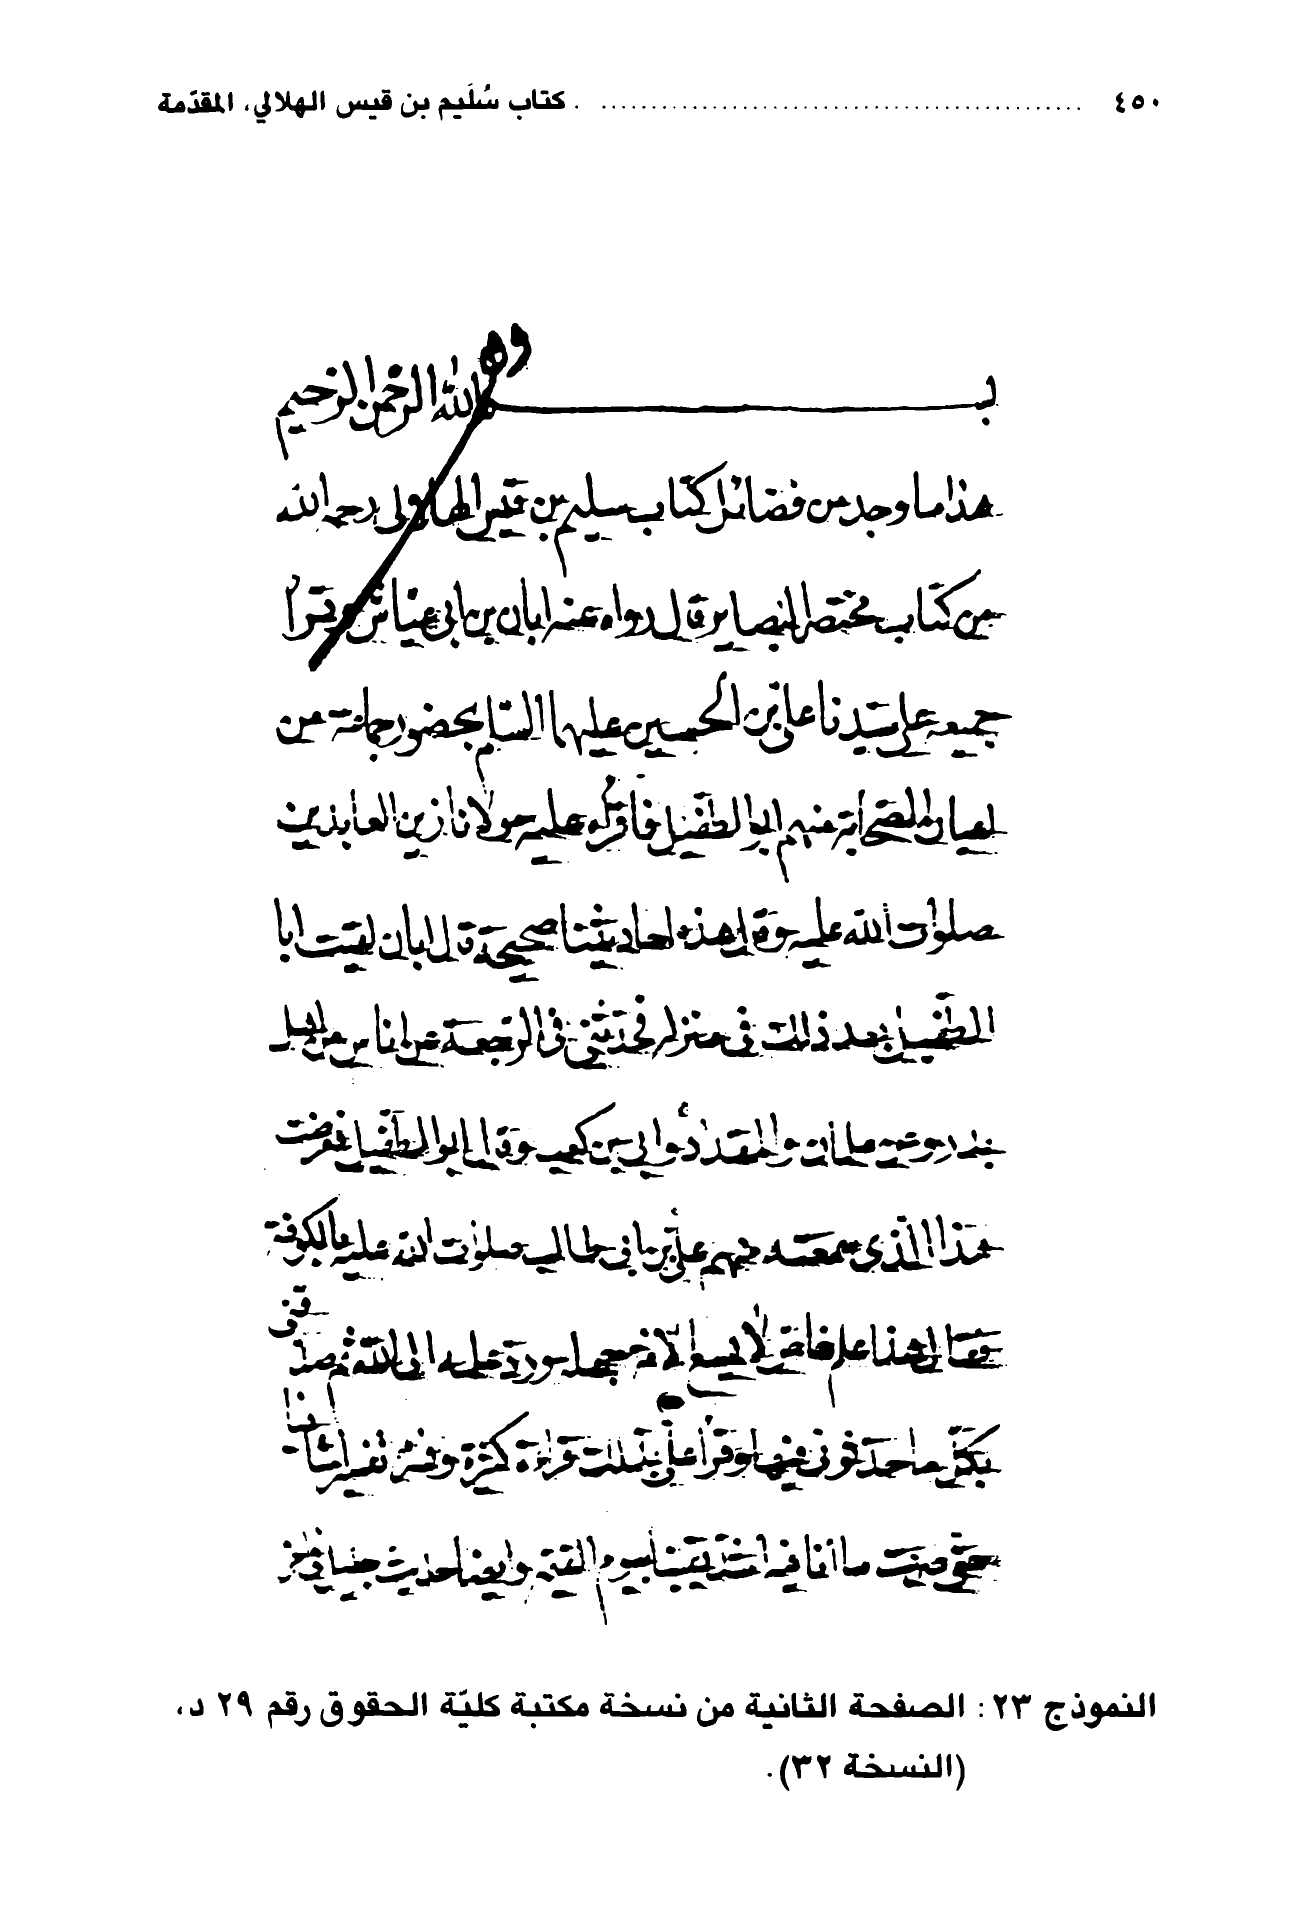 ٤٥٠ كتاب سُلَيم بن قيس الهلالي، المقدّمة
وه
بسم الله الرحمن الرحيم
هذا ما وجد من فضائل كتاب سليم بن قيس الهلالي رحمه الله
من كتاب مختصر البصاير قال رواه عنه ابان بن ابي عياش وقرأ
جميعه على سيدنا على بن الحسين عليهما السلم بحضور جماعة من
اعيان الصحابة منهم ابو الطفيل فاقره عليه مولانا زين العابدين
صلوات الله عليه وقال هذه احاديثنا صحيحة قال ابان لقيت ابا
الطفيل بعد ذلك فى منزله فحدثنى فى الرجعة عن اناس من اهل
بدر وعن سلمان والمقداد وابي بن كعب وقال ابو الطفيل فعرضت
هذا الذى سمعته منهم على بن ابي طالب صلوات الله عليه بالكوفة
فقال هذا علم خاص لا يسع الامة جهله ورد علمه الى الله ثم صدقنى
بكل ما حدثونى فيها وقرأ على بذلك قراءة كثيرة وفسره تفسيرا شافيا
حتى صرت ما انا فيه اشد يقينا بيوم القيمة وايضا حديث
النموذج ٢٣ : الصفحة الثانية من نسخة مكتبة كليّة الحقوق رقم ٢٩ د،
(النسخة ٣٢).